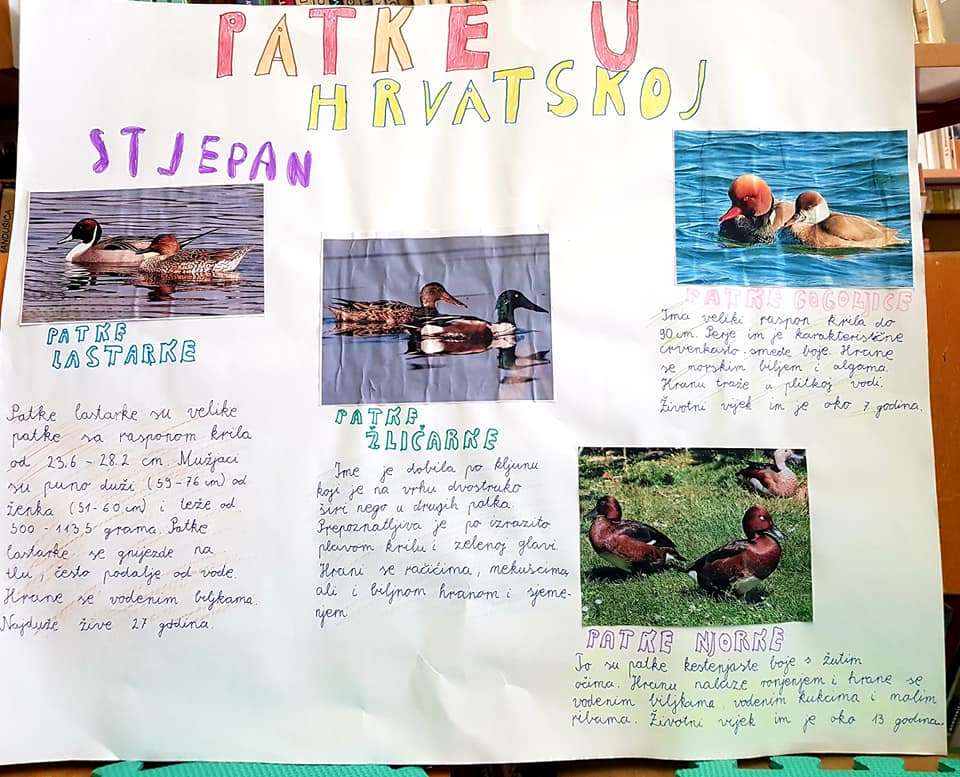 PATKE U
HRVATSKOJ
STJEPAN
PATKE
LASTARKE
Patke lastarke su velike
patke sa rasponom krila
od 23,6 - 28.2 cm. Mužjaci
su puno duži (59-76 cm) od
ženka (51-60 cm) i teže od
500 - 1135 grama. Patke
lastarke se gnijezde na
tlu, često podalje od vode.
Hrane se vodenim biljkama.
Najduže žive 27 godina.
PATKE
ŽLIČARKE
Ime je dobila po kljunu
koji je na vrhu dvostruko
širi nego u drugih patka.
Prepoznatljiva je po izrazito
plavom krilu i zelenoj glavi.
Hrani se račićima, mekušcima,
ali i biljnom hranom i sjeme-
njem.
PATKE GOGOLJICE
Ima veliki raspon krila do
90 cm. Perje im je karakteristične
crvenkasto-smeđe boje. Hrane
se morskim biljem i algama.
Hranu traže u plitkoj vodi.
Životni vijek im je oko 7 godina.
PATKE NJORKE
To su patke kestenjaste boje s žutim
očima. Hranu nalaze ronjenjem i hrane se
vodenim biljkama, vodenim kukcima i malim
ribama. Životni vijek im je oko 13 godina.